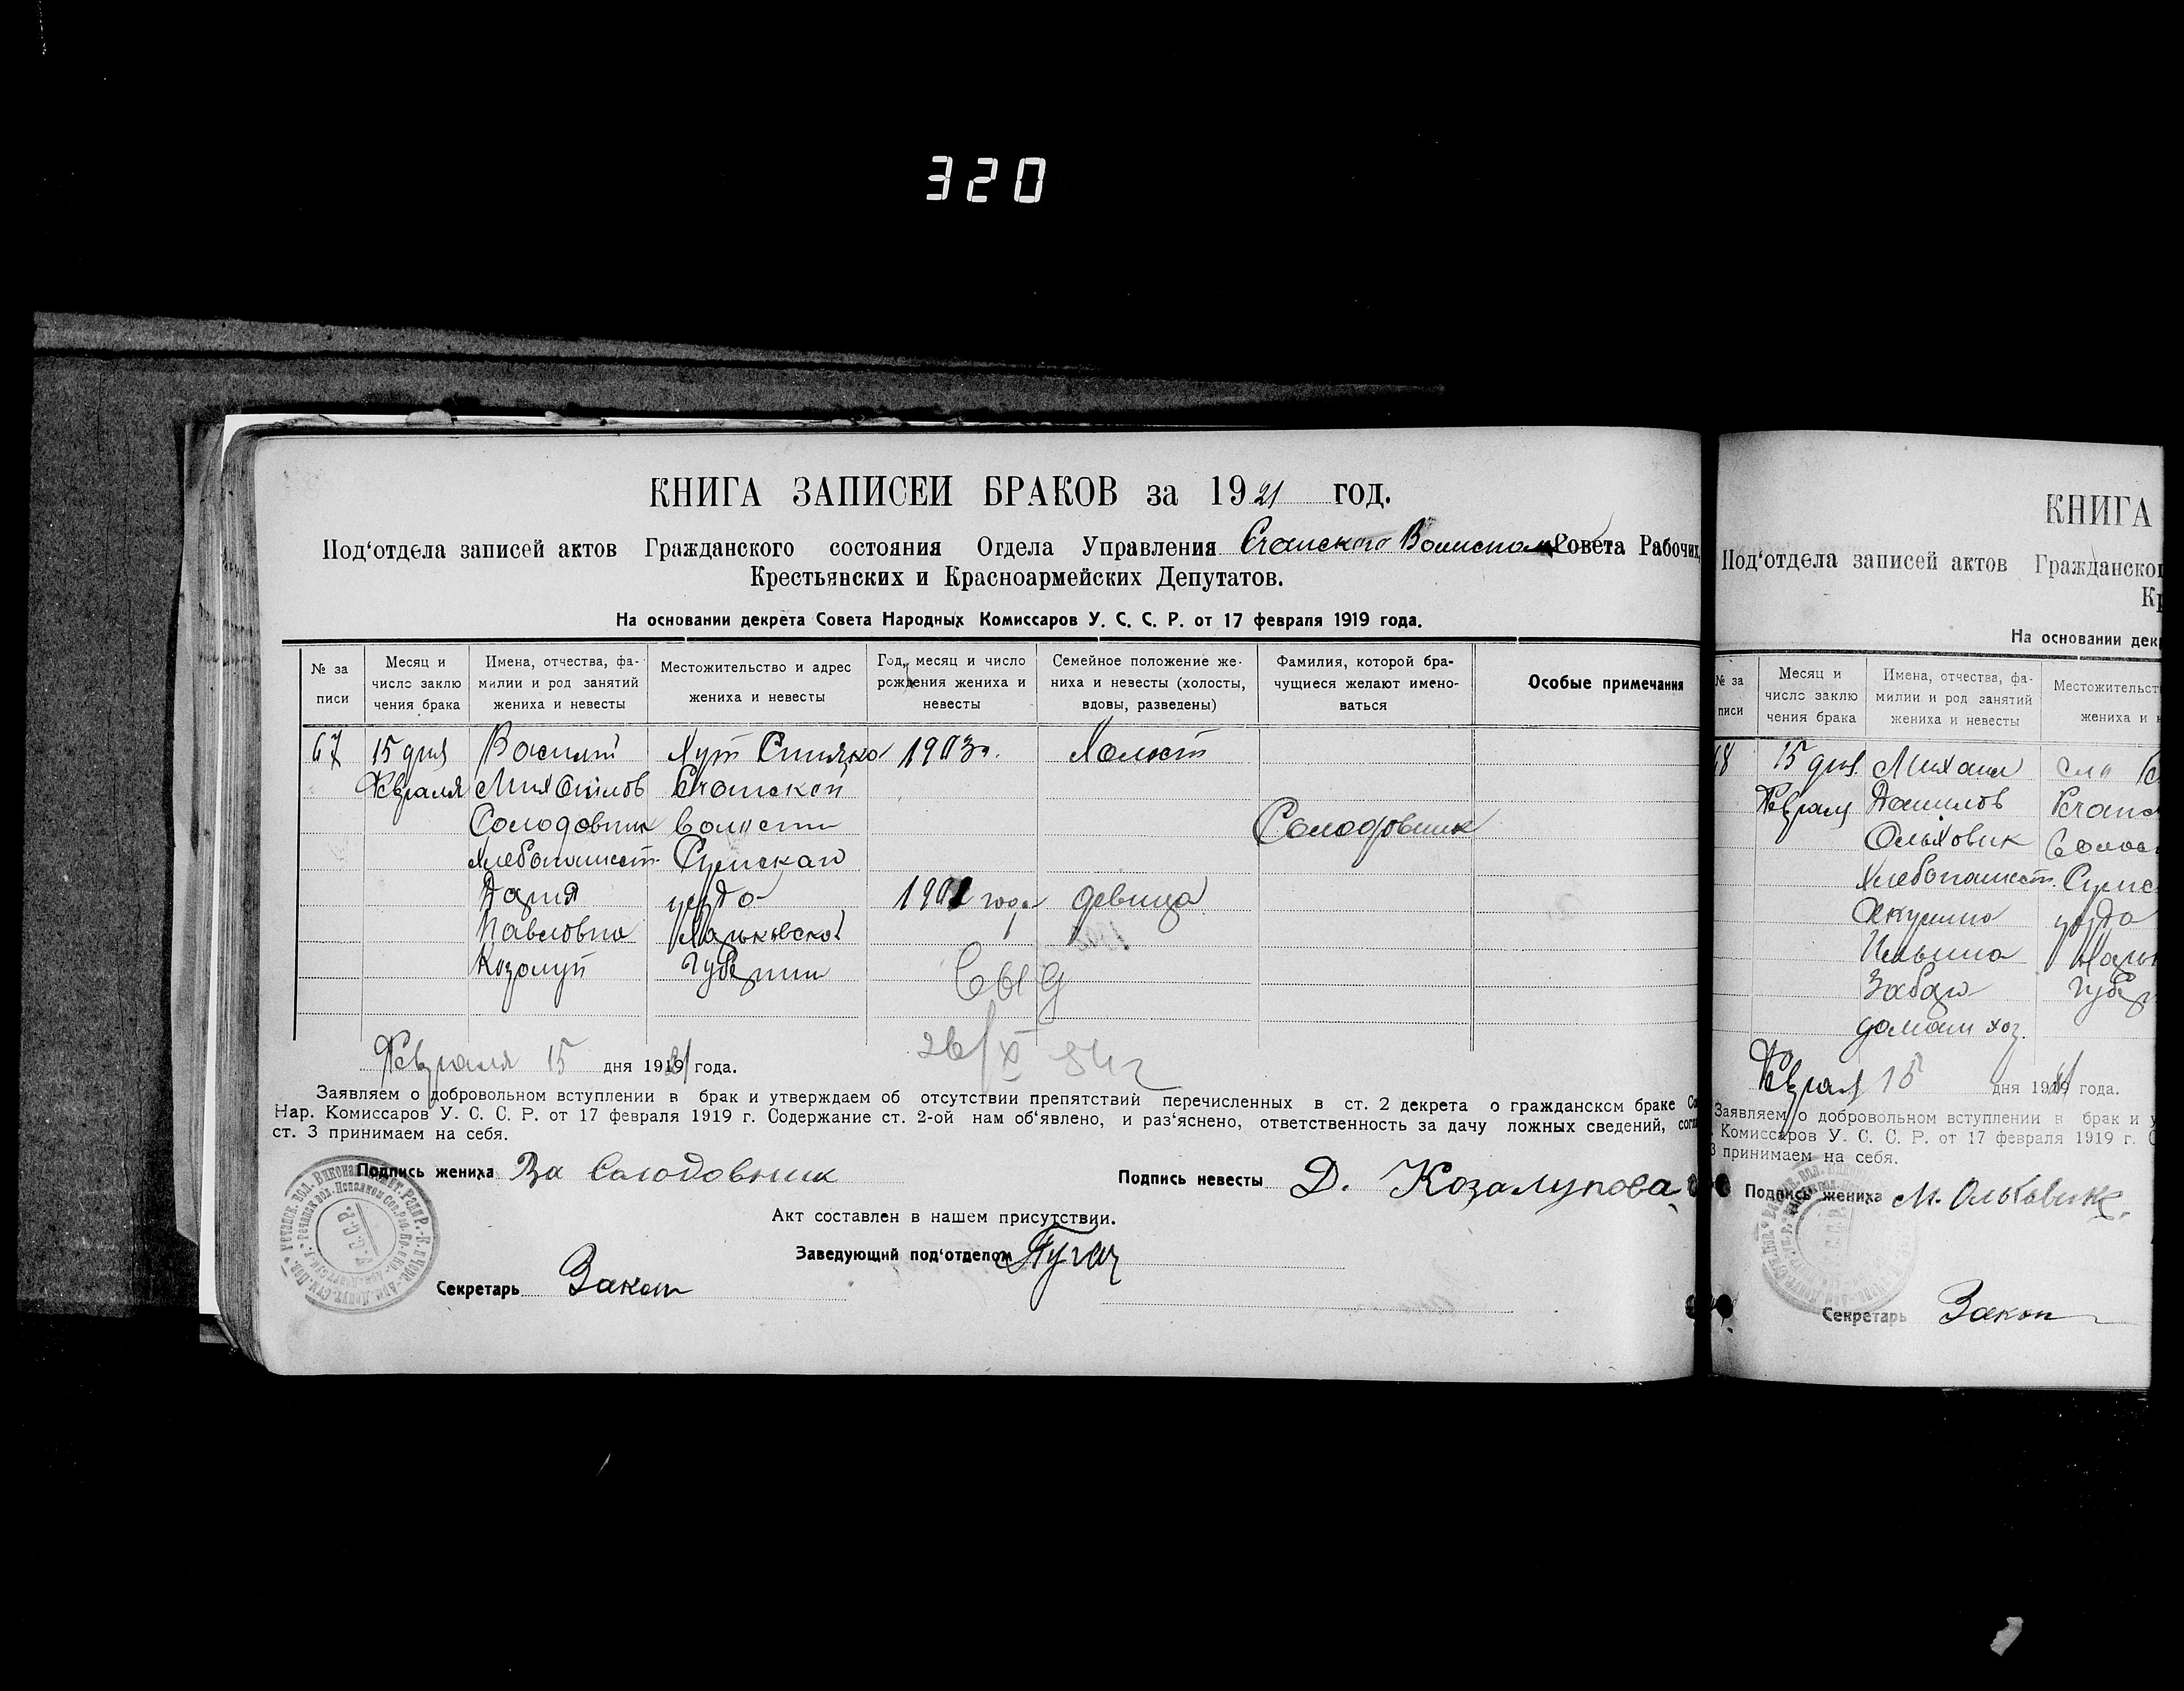 320
КНИГА ЗАПИСЕЙ БРАКОВ за 1921 год.
Под'отдела записей актов Гражданского состояния Отдела Управления Совета Рабочих,
Крестьянских и Красноармейских Депутатов.
На основании декрета Совета Народных Комиссаров У. С. С. Р. от 17 февраля 1919 года.
№ за писи
Месяц и число заклю чения брака
Имена, отчества, фа- милии и род занятий жениха и невесты
Местожительство и адрес жениха и невесты
Год, месяц и число рождения жениха и невесты
Семейное положение же- ниха и невесты (холосты, вдовы, разведены)
Фамилия, которой бра- чущиеся желают имено- ваться
Особые примечания
67 15 дня Василий Хут 1903 г. Холост
Февраля Михайлов
Солодовник волости Солодовник
Хлебопашест. Сумскаго
Дария уезда 1901 года девица
Павловна Харьковской
Козолуп Губернии
Выд
26/X 54 г
Февраля 15 дня 1921 года.
Заявляем о добровольном вступлении в брак и утверждаем об отсутствии препятствий перечисленных в ст. 2 декрета о гражданском браке
Нар. Комиссаров У. С. С. Р. от 17 февраля 1919 г. Содержание ст. 2-ой нам об'явлено, и раз'яснено, ответственность за дачу ложных сведений,
ст. 3 принимаем на себя.
Подпись жениха Ва Солодовник
Подпись невесты Д. Козалупова
Акт составлен в нашем присутствии.
Заведующий под'отделом Пугач
Секретарь
КНИГА
Под'отдела записей актов Гражданског
Кр
На основании дек
№ за писи
Месяц и число заклю чения брака
Имена, отчества, фа- милии и род занятий жениха и невесты
Местожительст жениха и н
68 15 дня Михаил
Февраля Данилов
Ольховик Волос
Хлебопашест. Сумс
Акулина уезда
Ильина Харьк
Забаго Губер
домаш хоз.
Феврал 15 дня 1921 года.
Заявляем о добровольном вступлении в брак и у
Комиссаров У. С. С. Р. от 17 февраля 1919 г.
3 принимаем на себя.
Подпись жениха М. Ольховик
Секретарь